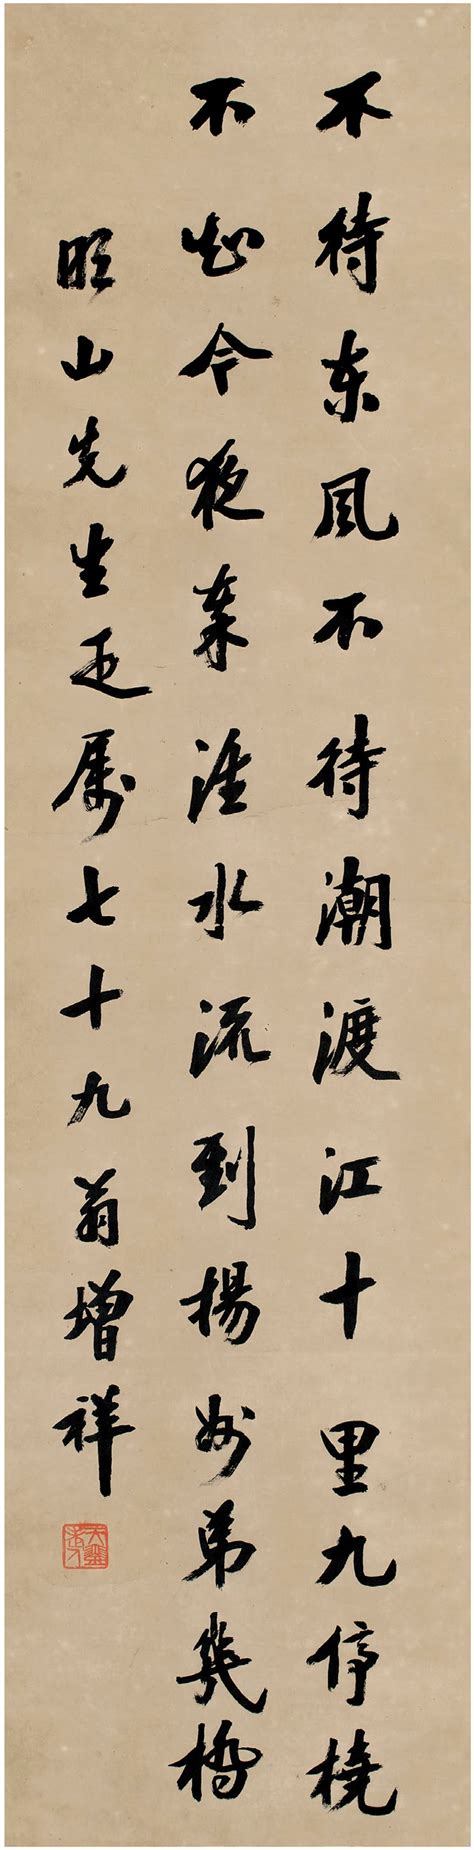 不待東風不待潮渡江十里九停橈
不知今夜秦淮水流到揚州弟幾橋
旺山先生正属七十九翁增祥